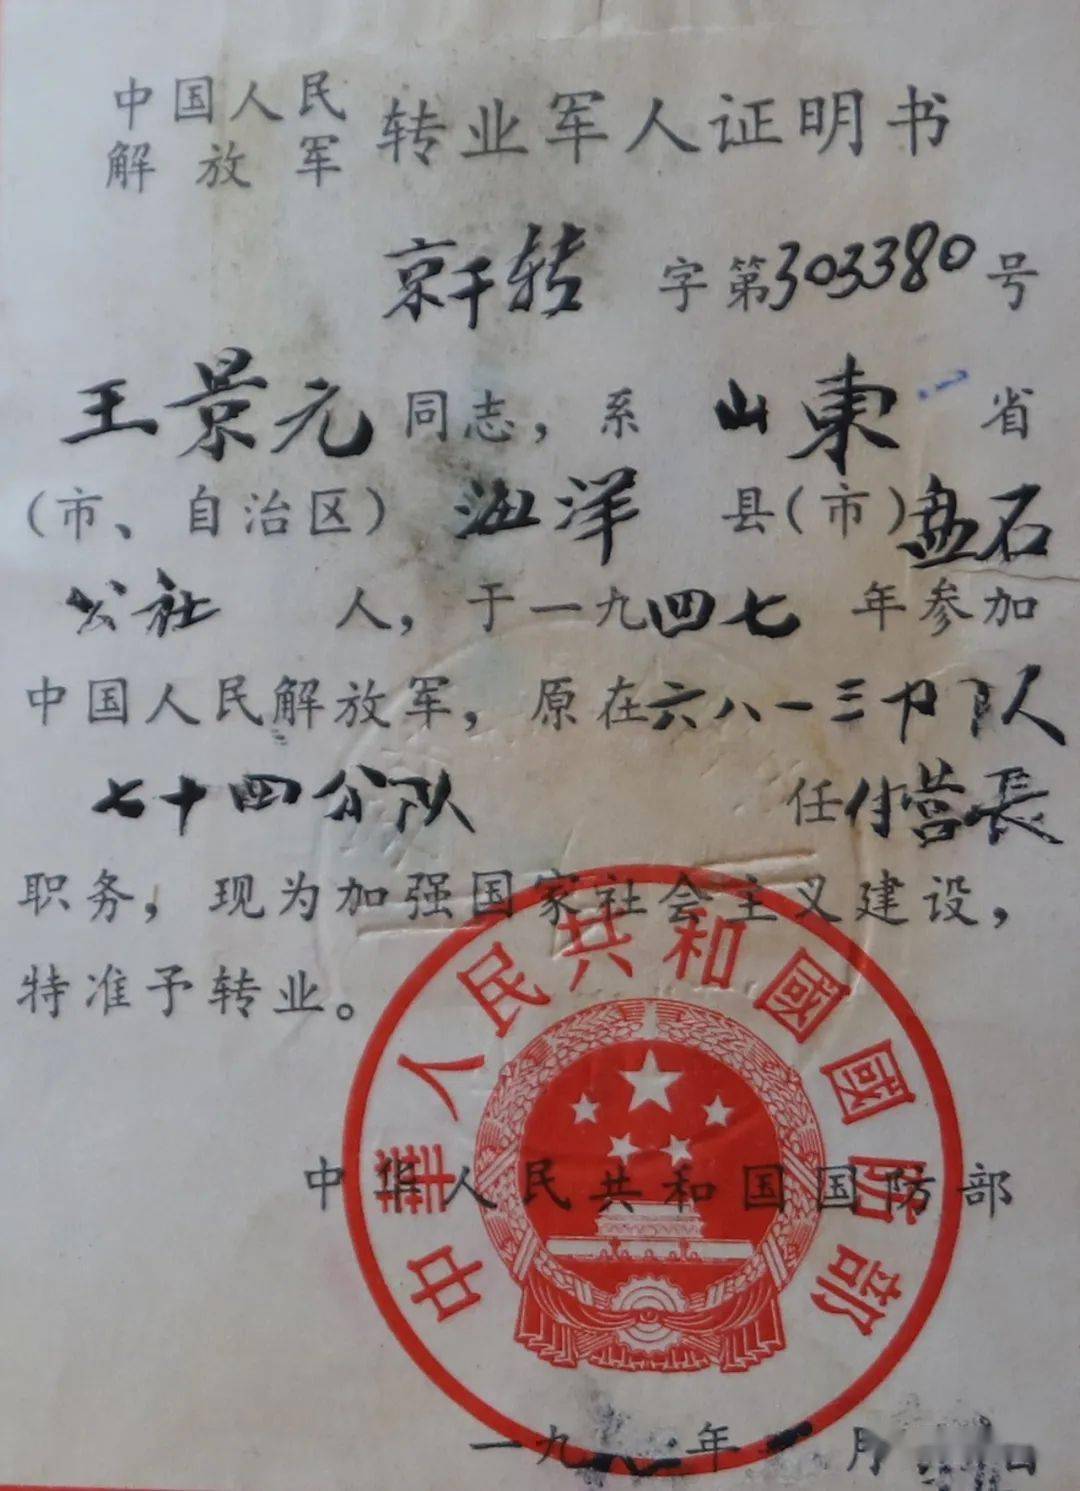 中国人民
解放军
转业军人证明书
京干转 字第303380号
王景元同志，系 山東 省
（市、自治区）海洋 县（市）盘石
公社 人，于一九四七 年参加
中国人民解放军，原在六八一三部队
七十四分队 任付营長
职务，现为加强国家社会主义建设，
特准予转业。
中华人民共和国国防部
中華人民共和國國防部
一九 年 月 日